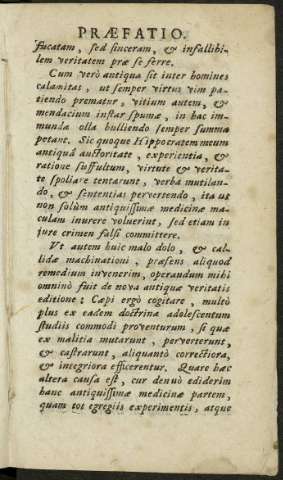 PRÆFATIO.
fucatam, sed sinceram, & infallibi-
lem veritatem præ se ferre.
Cum verò antiqua sit inter homines
calamitas, ut semper virtus vim pa-
tiendo prematur, vitium autem, &
mendacium instar spumæ, in hac im-
munda olla bulliendo semper summa
petant. Sic quoque Hippocratem meum
antiquâ auctoritate, experientia, &
ratione suffultum, virtute & verita-
te spoliare tentarunt, verba mutilan-
do, & sententias pervertendo, ita ut
non solùm antiquissimæ medicinæ ma-
culam inurere voluerint, sed etiam in
jure crimen falsi committere.
Vt autem huic malo dolo, & cal-
lidæ machinationi, præsens aliquod
remedium invenerim, operandum mihi
omninò fuit de nova antiquæ veritatis
editione; Cæpi ergò cogitare, multò
plus ex eadem doctrina adolescentum
studiis commodi proventurum, si quæ
ex malitia mutarunt, perverterunt,
& castrarunt, aliquantò correctiora,
& integriora efficerentur. Quare hæc
altera causa est, cur denuò ediderim
hanc antiquissimæ medicinæ partem,
quam tot egregiis experimentis, atque